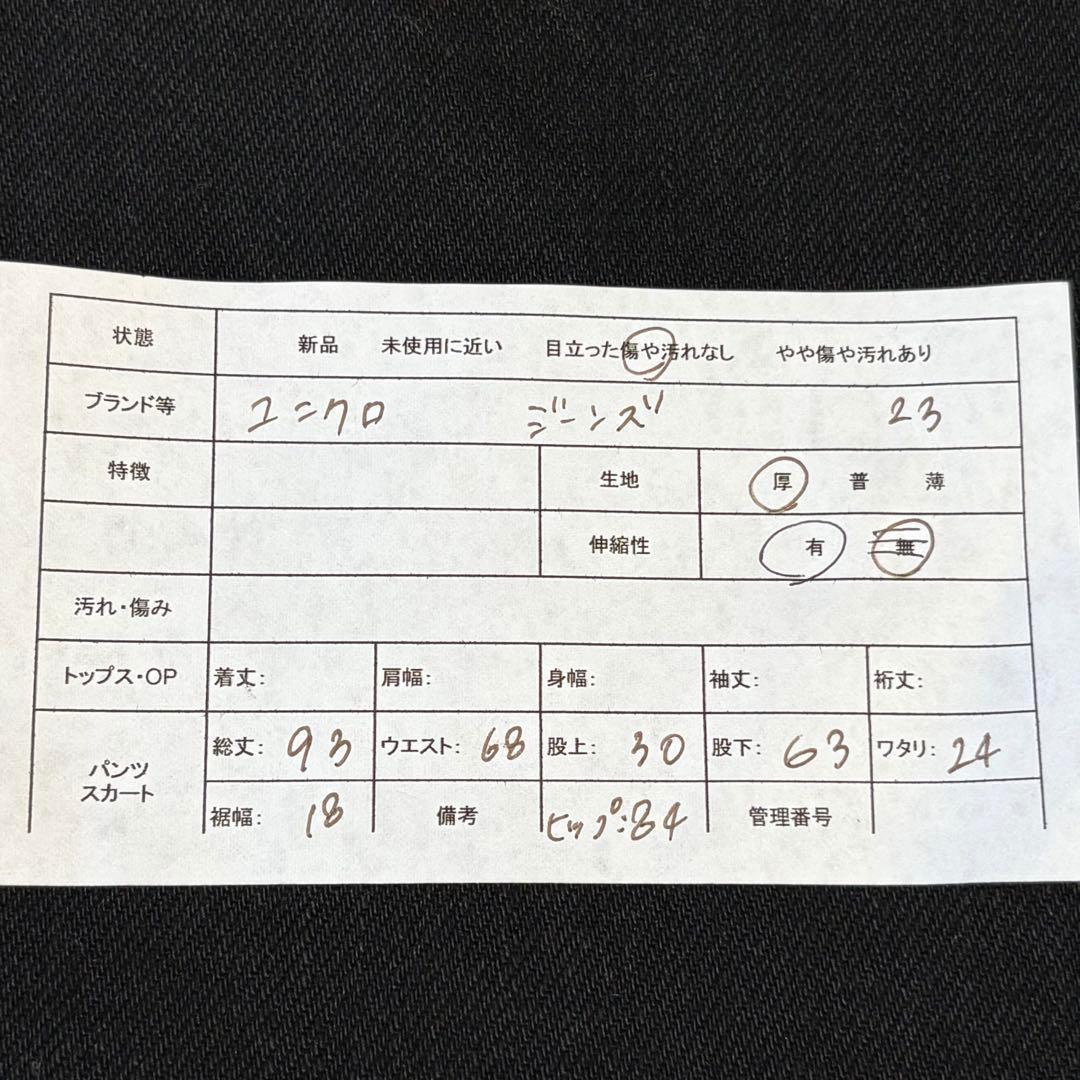 状態 新品 未使用に近い 目立った傷や汚れなし やや傷や汚れあり
ブランド等 ユニクロ ジーンズ 23
特徴 生地 厚 普 薄
伸縮性 有 無
汚れ・傷み
トップス・OP 着丈: 肩幅: 身幅: 袖丈: 裄丈:
パンツ スカート 総丈: 93 ウエスト: 68 股上: 30 股下: 63 ワタリ: 24
裾幅: 18 備考 ヒップ:84 管理番号